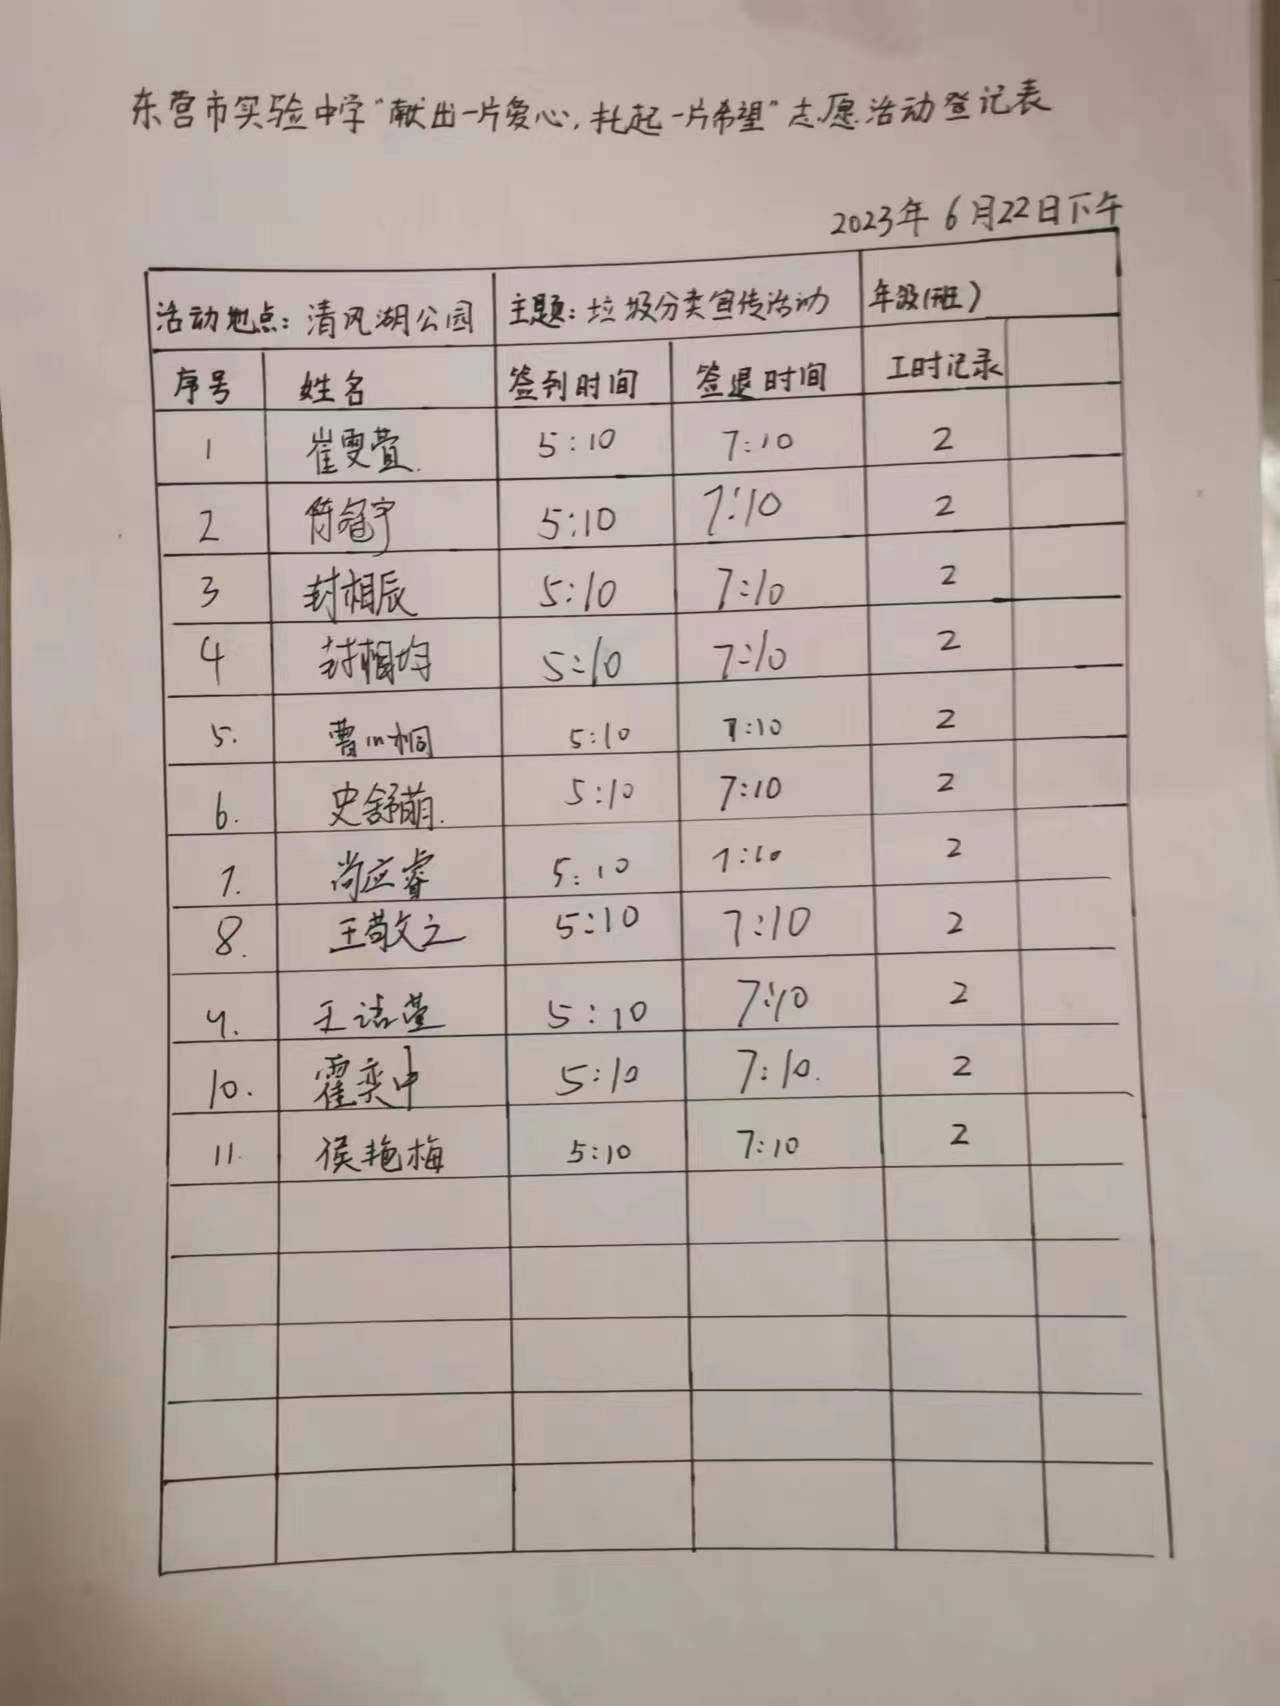 东营市实验中学“献出一片爱心，托起一片希望”志愿活动登记表
2023年6月22日下午
活动地点：清风湖公园 主题：垃圾分类宣传活动 年级（班）
序号 姓名 签到时间 签退时间 工时记录
1 崔雯萱. 5:10 7:10 2
2 陈冠宇 5:10 7:10 2
3 封相辰 5:10 7:10 2
4 封相均 5:10 7:10 2
5. 曹 桐 5:10 7:10 2
6. 史舒萌. 5:10 7:10 2
7. 尚应睿 5:10 7:10 2
8. 王敬之 5:10 7:10 2
9. 王洁莹 5:10 7:10 2
10. 霍奕中 5:10 7:10. 2
11. 侯艳梅 5:10 7:10 2